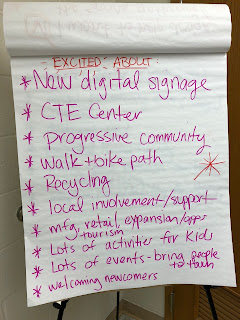 EXCITED ABOUT:
* New digital signage
* CTE Center
* Progressive community
* walk + bike path
* Recycling
* local involvement/support
* mfg, retail, expansion/oppor
tourism
* Lots of activities for kids
* Lots of events - bring people
to town
* welcoming newcomers